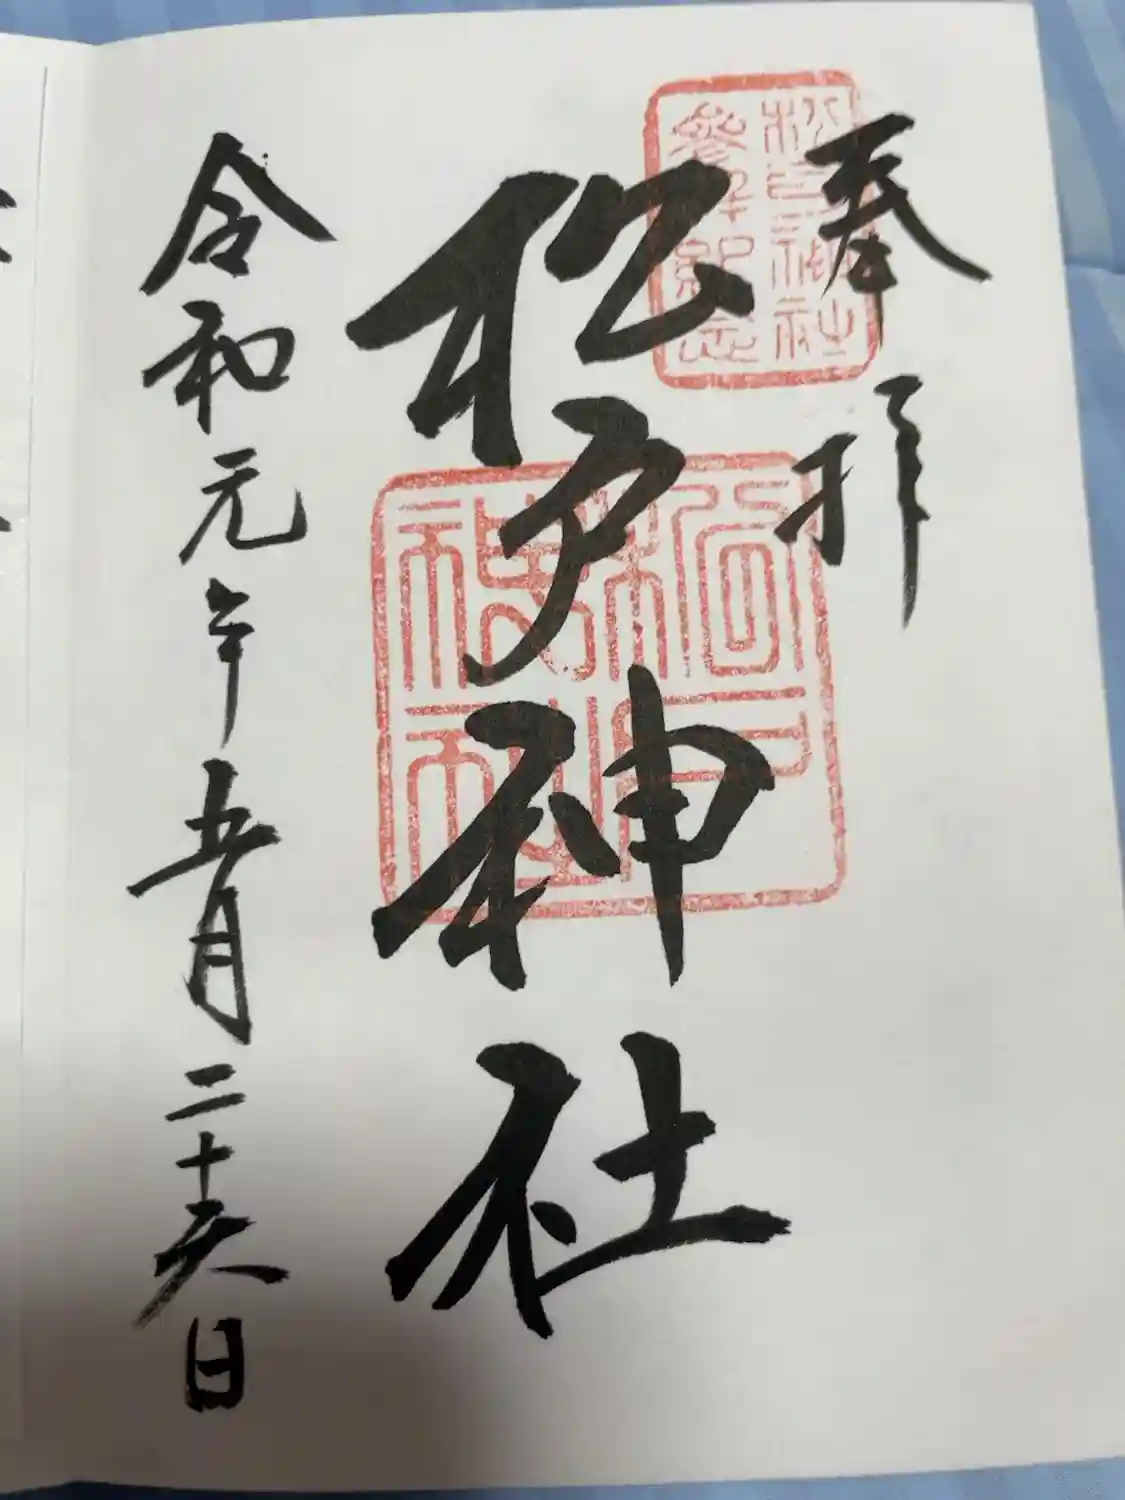 奉拝
松戸神社
令和元年五月二十六日
松戸神社
参拝記念
松戸
神社